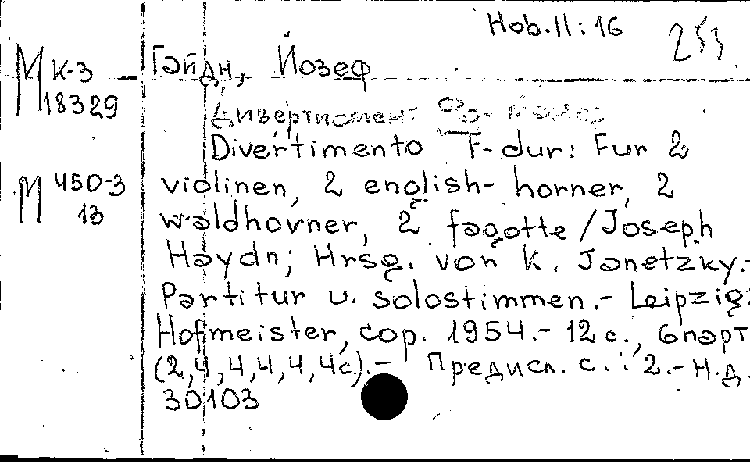 Hob.II:16
253
М К-3
18329
Гайдн, Йозеф
Дивертисмент
Divertimento F-dur: Fur 2
М 450-3
13
violinen, 2 english-horner, 2
waldhorner, 2 fagotte/Joseph
Haydn; Hrsg. von K. Janetzky.-
Partitur u. solostimmen.- Leipzig:
Hofmeister, cop. 1954.- 12 c., 6парт
(2,4,4,4,4,4c).- Предисл. с.: 2.- Н.д.
30103